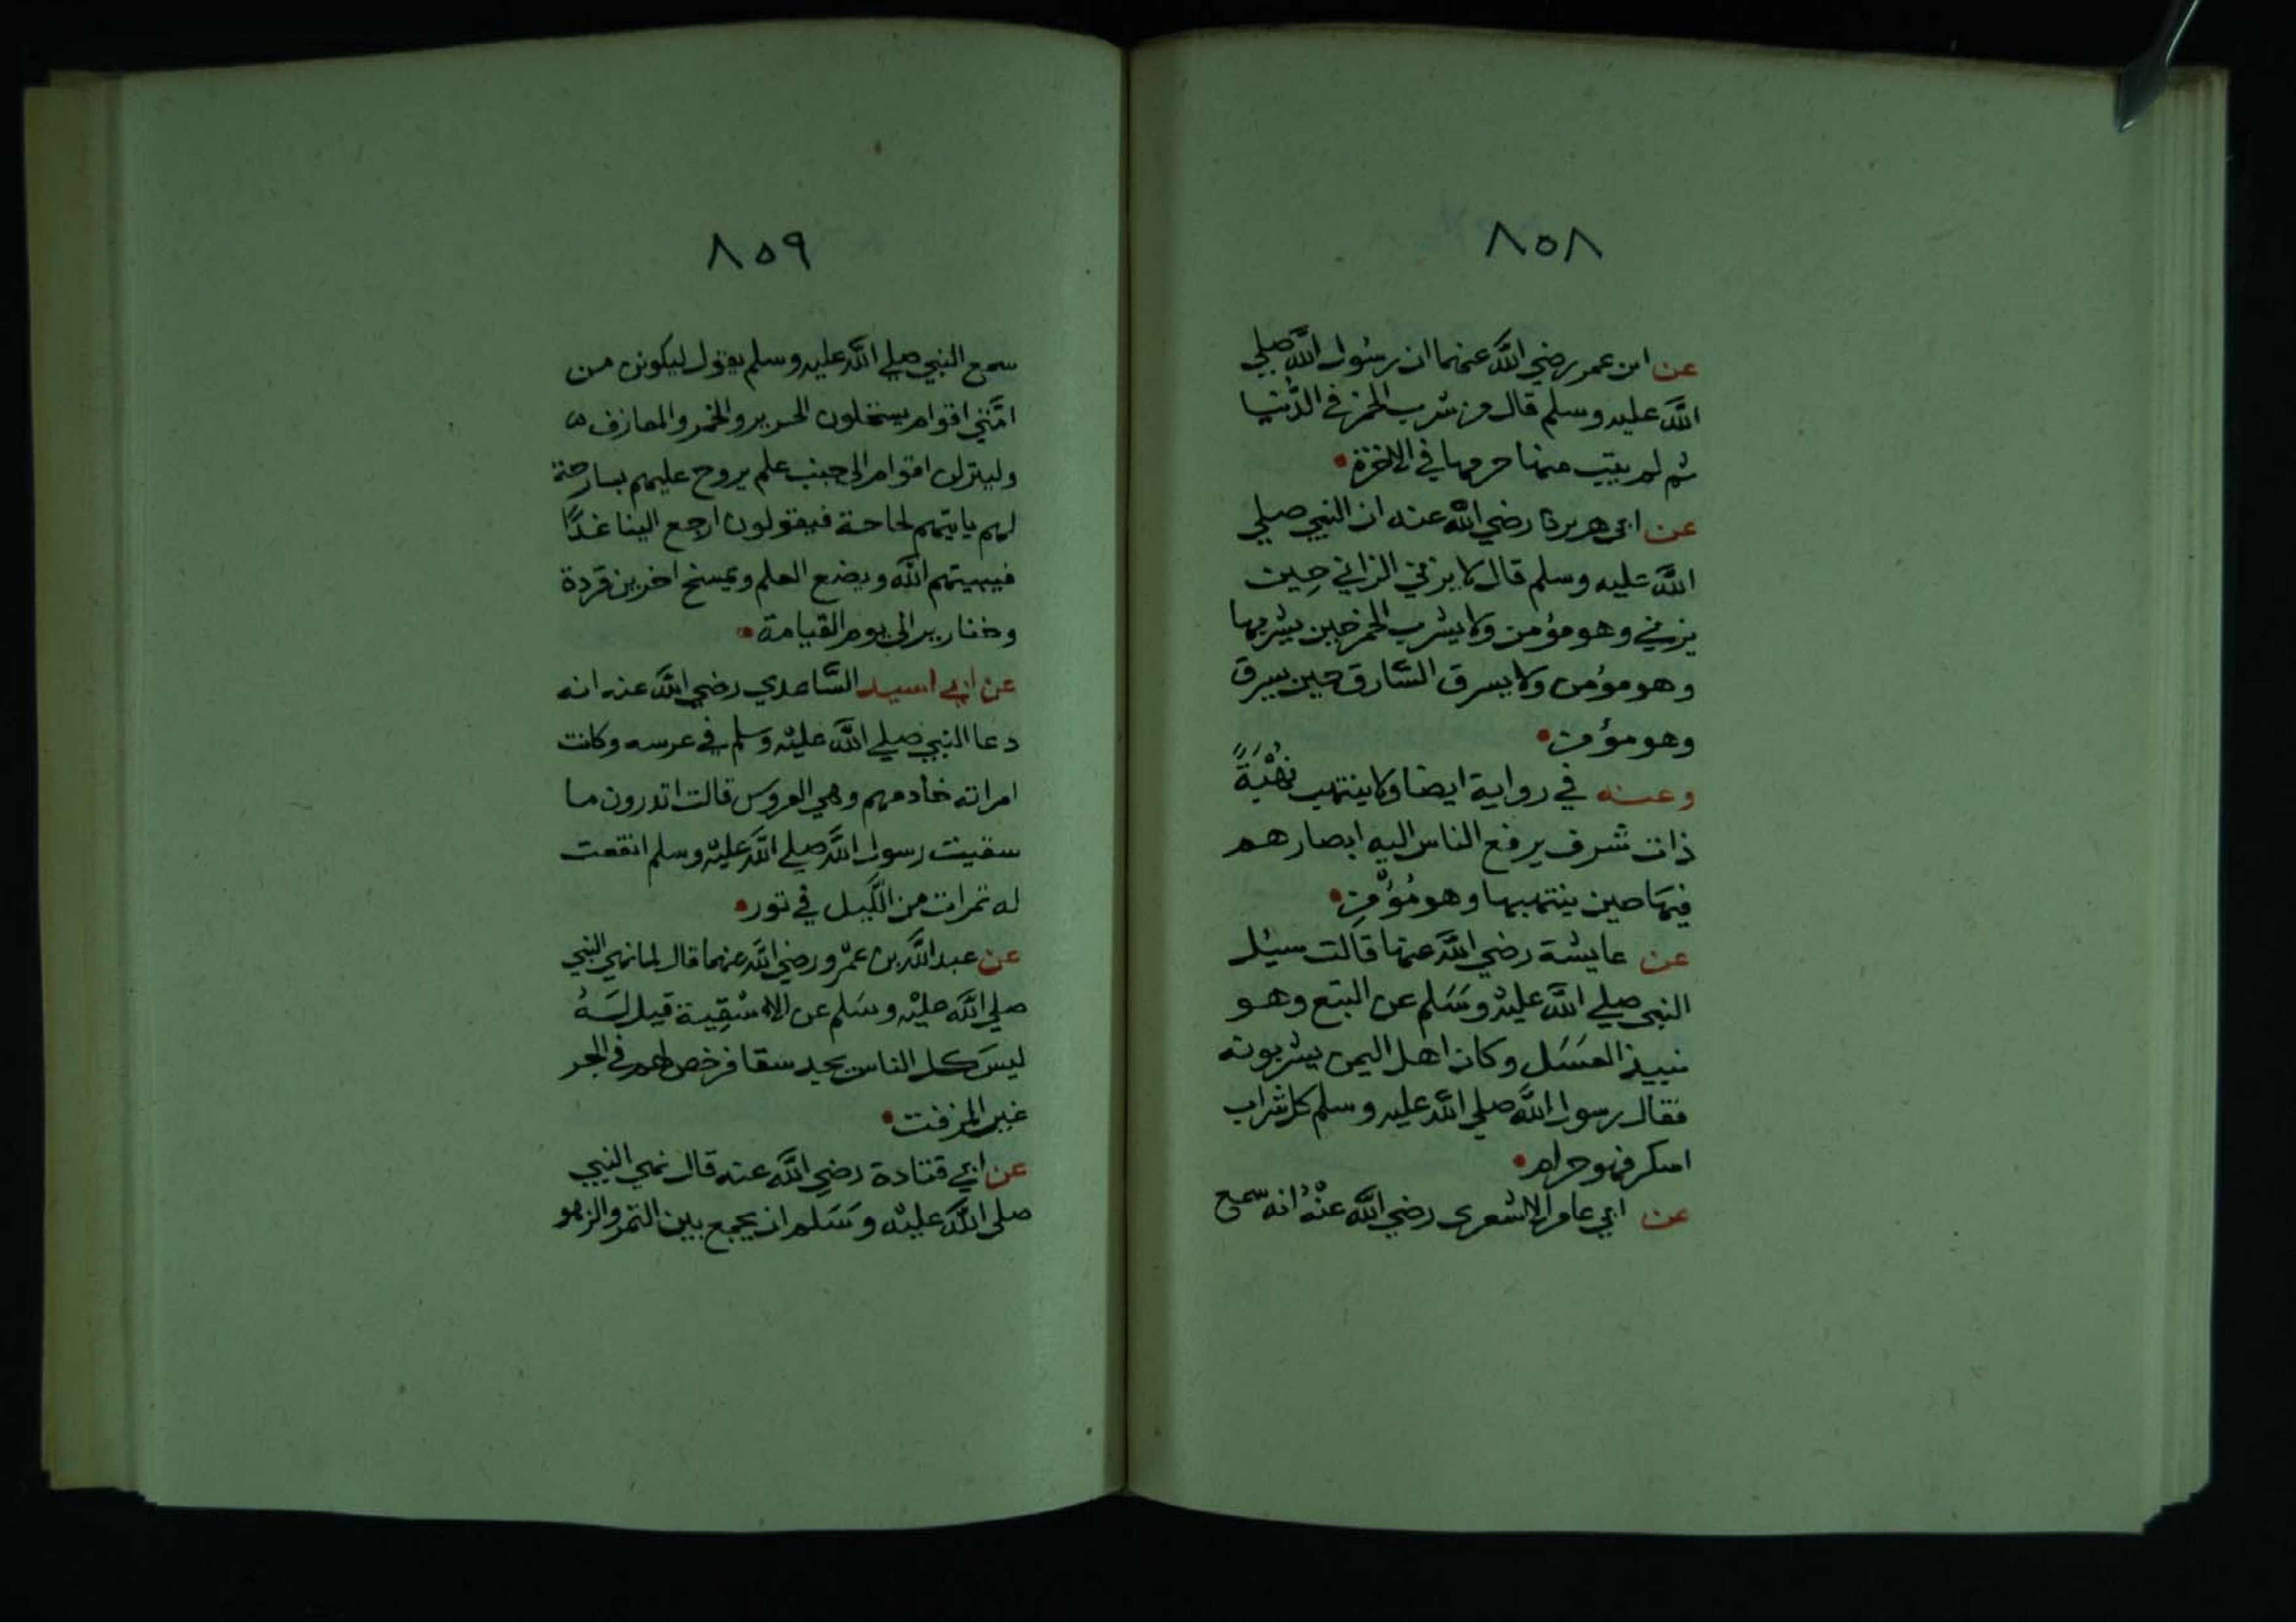 ٨٥٨
عن ابن عمر رضي الله عنهما ان رسول الله صلي
الله عليه وسلم قال من شرب الخمر في الدُّنيا
ثم لم يتب منها حرمها في الاخرة
عن ابي هريرة رضي الله عنه ان النبي صلي
الله عليه وسلم قال لا يزني الزاني حِين
يزني وهو مؤمن ولا يشرب الخمر حين يشربها
وهو مؤمن ولا يسرق السَّارق حين يسرق
وهو مؤمن
وعنه في رواية ايضا ولا ينتهب نُهْبَةً
ذات شرف يرفع الناس اليه ابصارهم
فيهَا حين ينتهبها وهو مُؤمِن
عن عايشة رضي الله عنها قالت سيل
النبي صلي الله عليْه وسَلم عن البتع وهو
نبيذ العسَل وكان اهل اليمن يشربونه
فقال رسول الله صلي الله عليه وسلم كل شراب
اسكر فهو حرام
عن ابي عامر الاشعرى رضي الله عنْه انه سمع
٨٥٩
سمع النبي صلي الله عليه وسلم يقول ليكونن من
امَّتي اقوام يستحلون الحرير والخمر والمعازف
ولينزلن اقوام الى جنب علم يروح عليهم بسارحة
لهم ياتيهم لحاجة فيقولون ارجع الينا غدًا
فيبيتهم الله ويضع العلم ويمسخ اخرين قردة
وخنازير الى يوم القيامة
عن ابي اسيد السَّاعدي رضي الله عنه انه
دعا النبي صلي الله عليْه وسلم في عرسه وكانت
امراته خادمهم وهي العروس قالت اتدرون ما
سقيت رسول الله صلي الله عليْه وسلم انقعت
له تمرات من اللَّيل في تور
عن عبد الله بن عمْرو رضي الله عنهما قال لما نهى النبي
صلي الله عليْه وسَلم عن الاسْقِية قيل لَهُ
ليسَ كل الناس يجد سقا فرخص لهم في الجر
غير المزفت
عن ابي قتادة رضي الله عنه قال نهي النبي
صلى الله عليْه وسَلم ان يجمع بين التمر والزهو